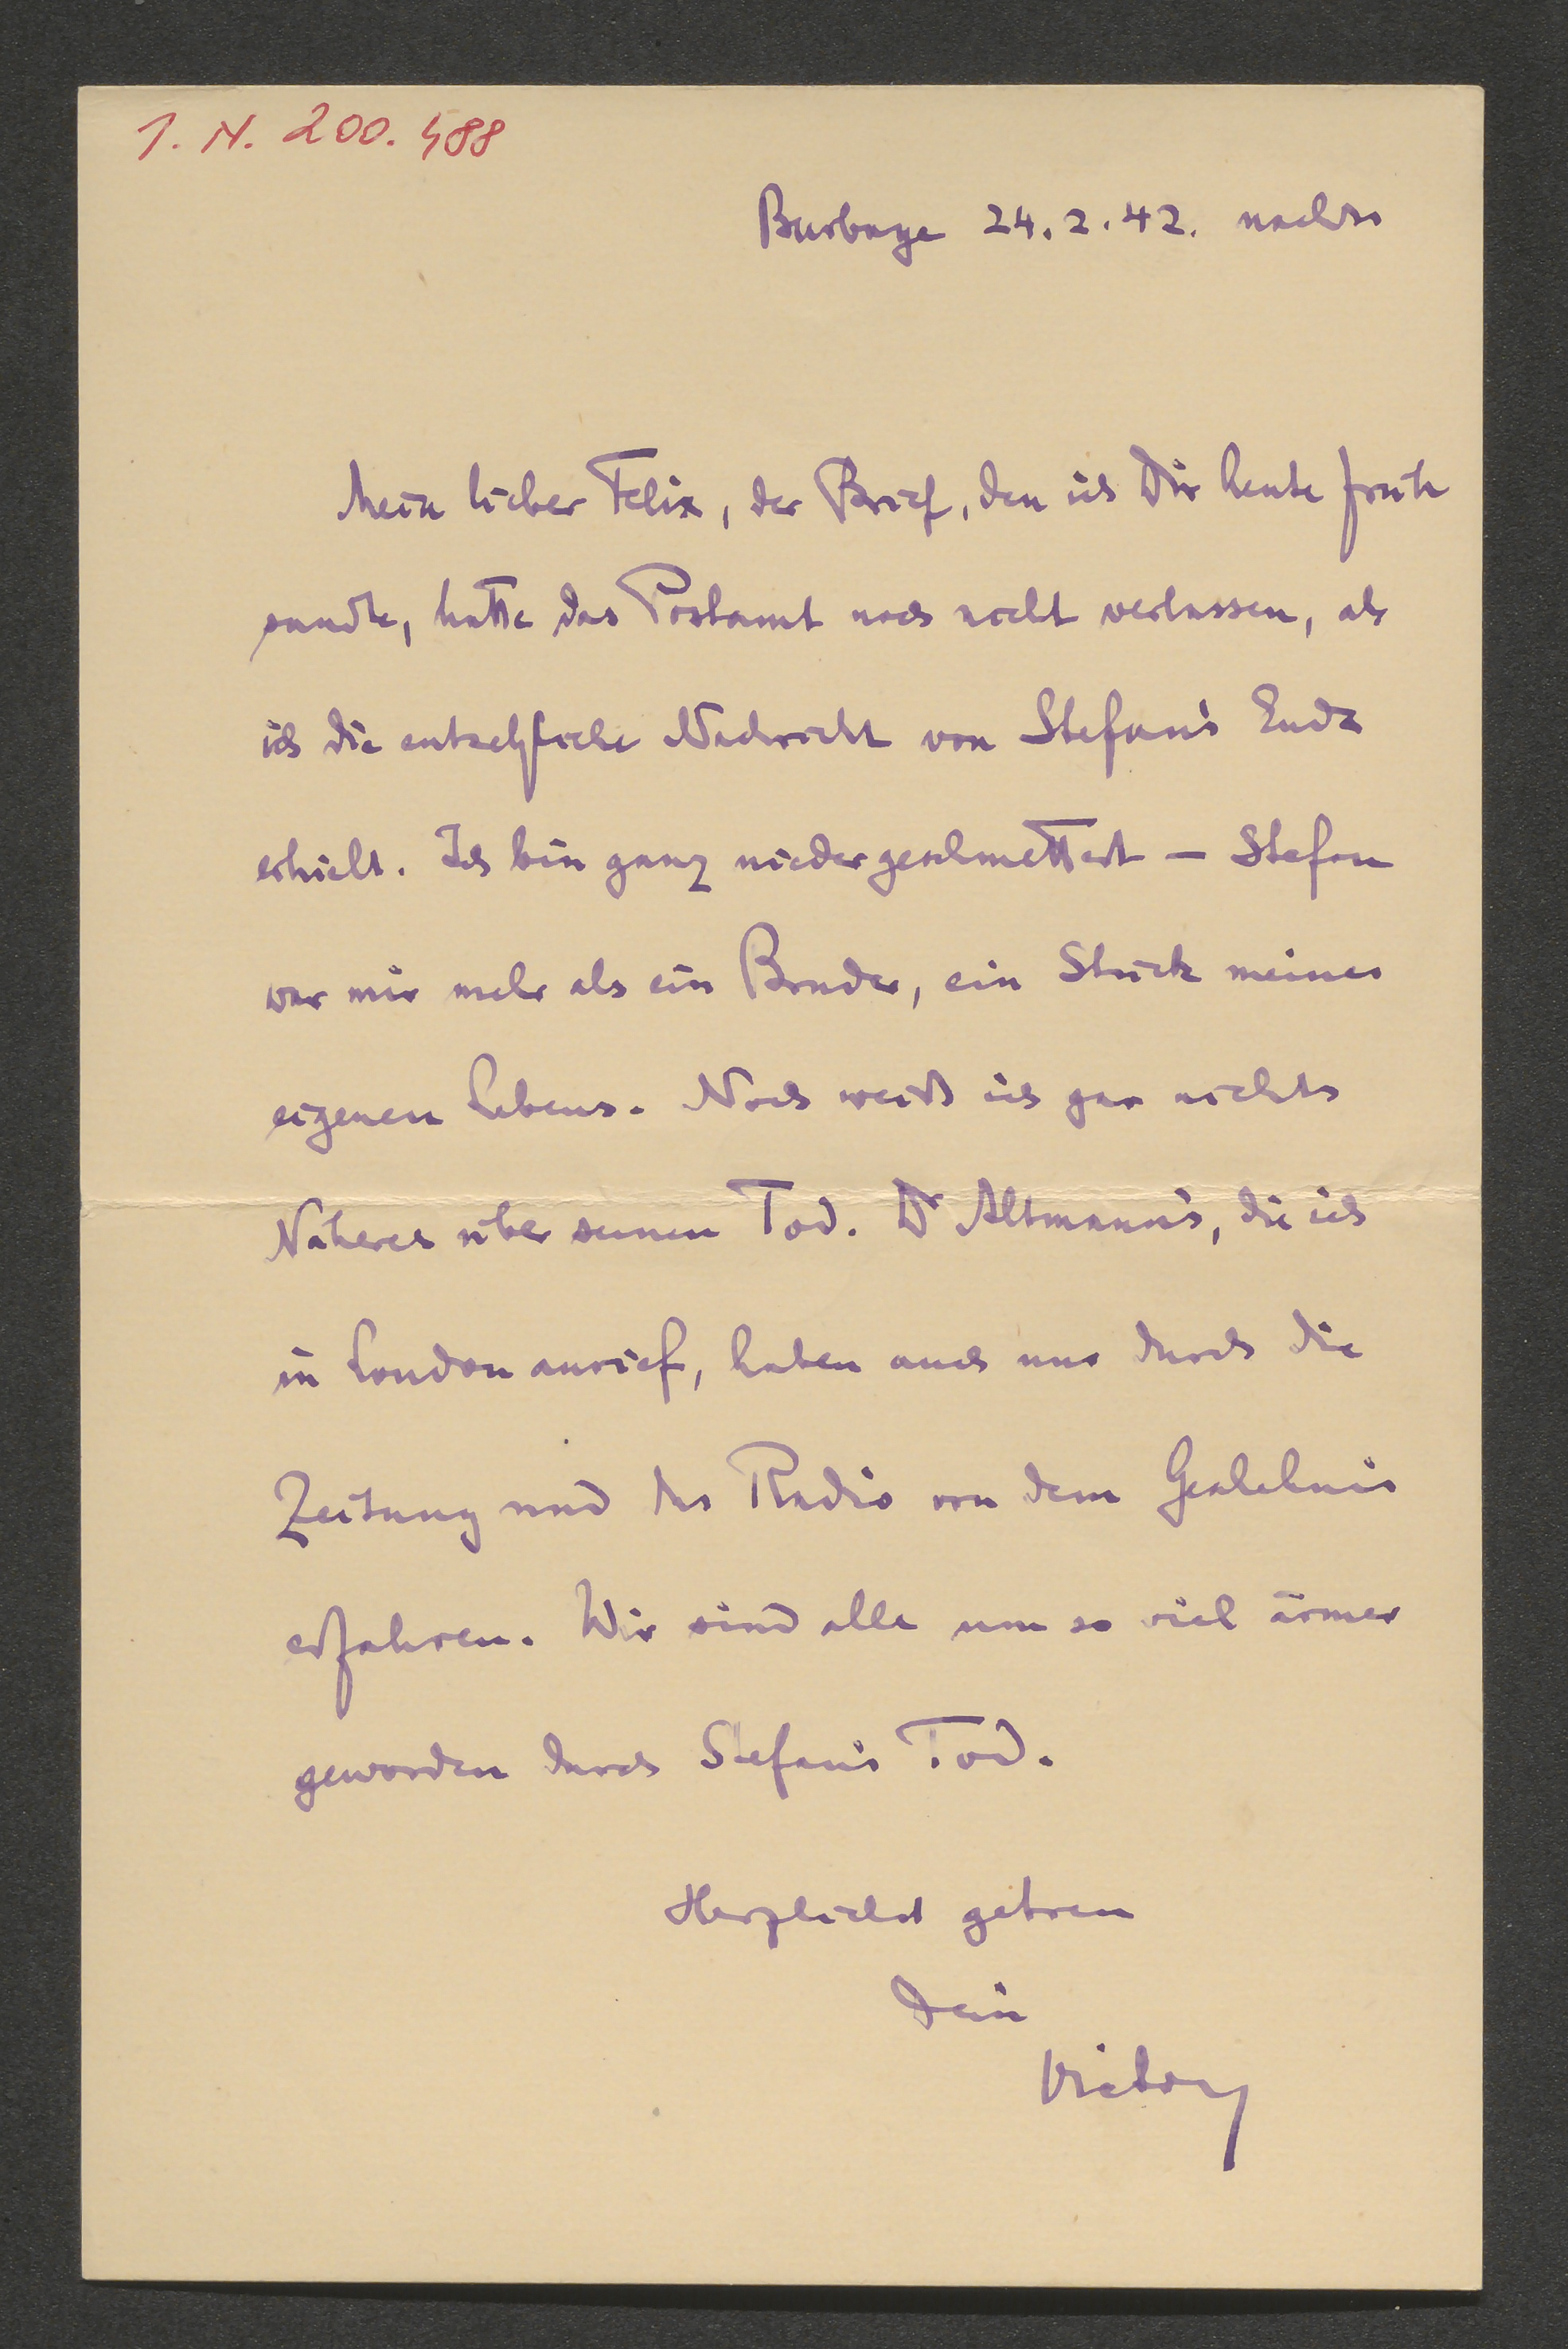 I. N. 200.488
Burbage 24.2.42. nachts
Mein lieber Felix, der Brief, den ich Dir heute früh
sandte, hatte das Postamt noch nicht verlassen, als
ich die entsetzliche Nachricht von Stefan's Ende
erhielt. Ich bin ganz niedergeschmettert – Stefan
war mir mehr als ein Bruder, ein Stück meines
eigenen Lebens. Noch weiß ich gar nichts
Näheres über seinen Tod. Dr Altmann's, die ich
in London anrief, haben auch nur durch die
Zeitung und das Radio von dem Geschehnis
erfahren. Wir sind alle um so viel ärmer
geworden durch Stefan's Tod.
Herzlichst getreu
Dein
Victor